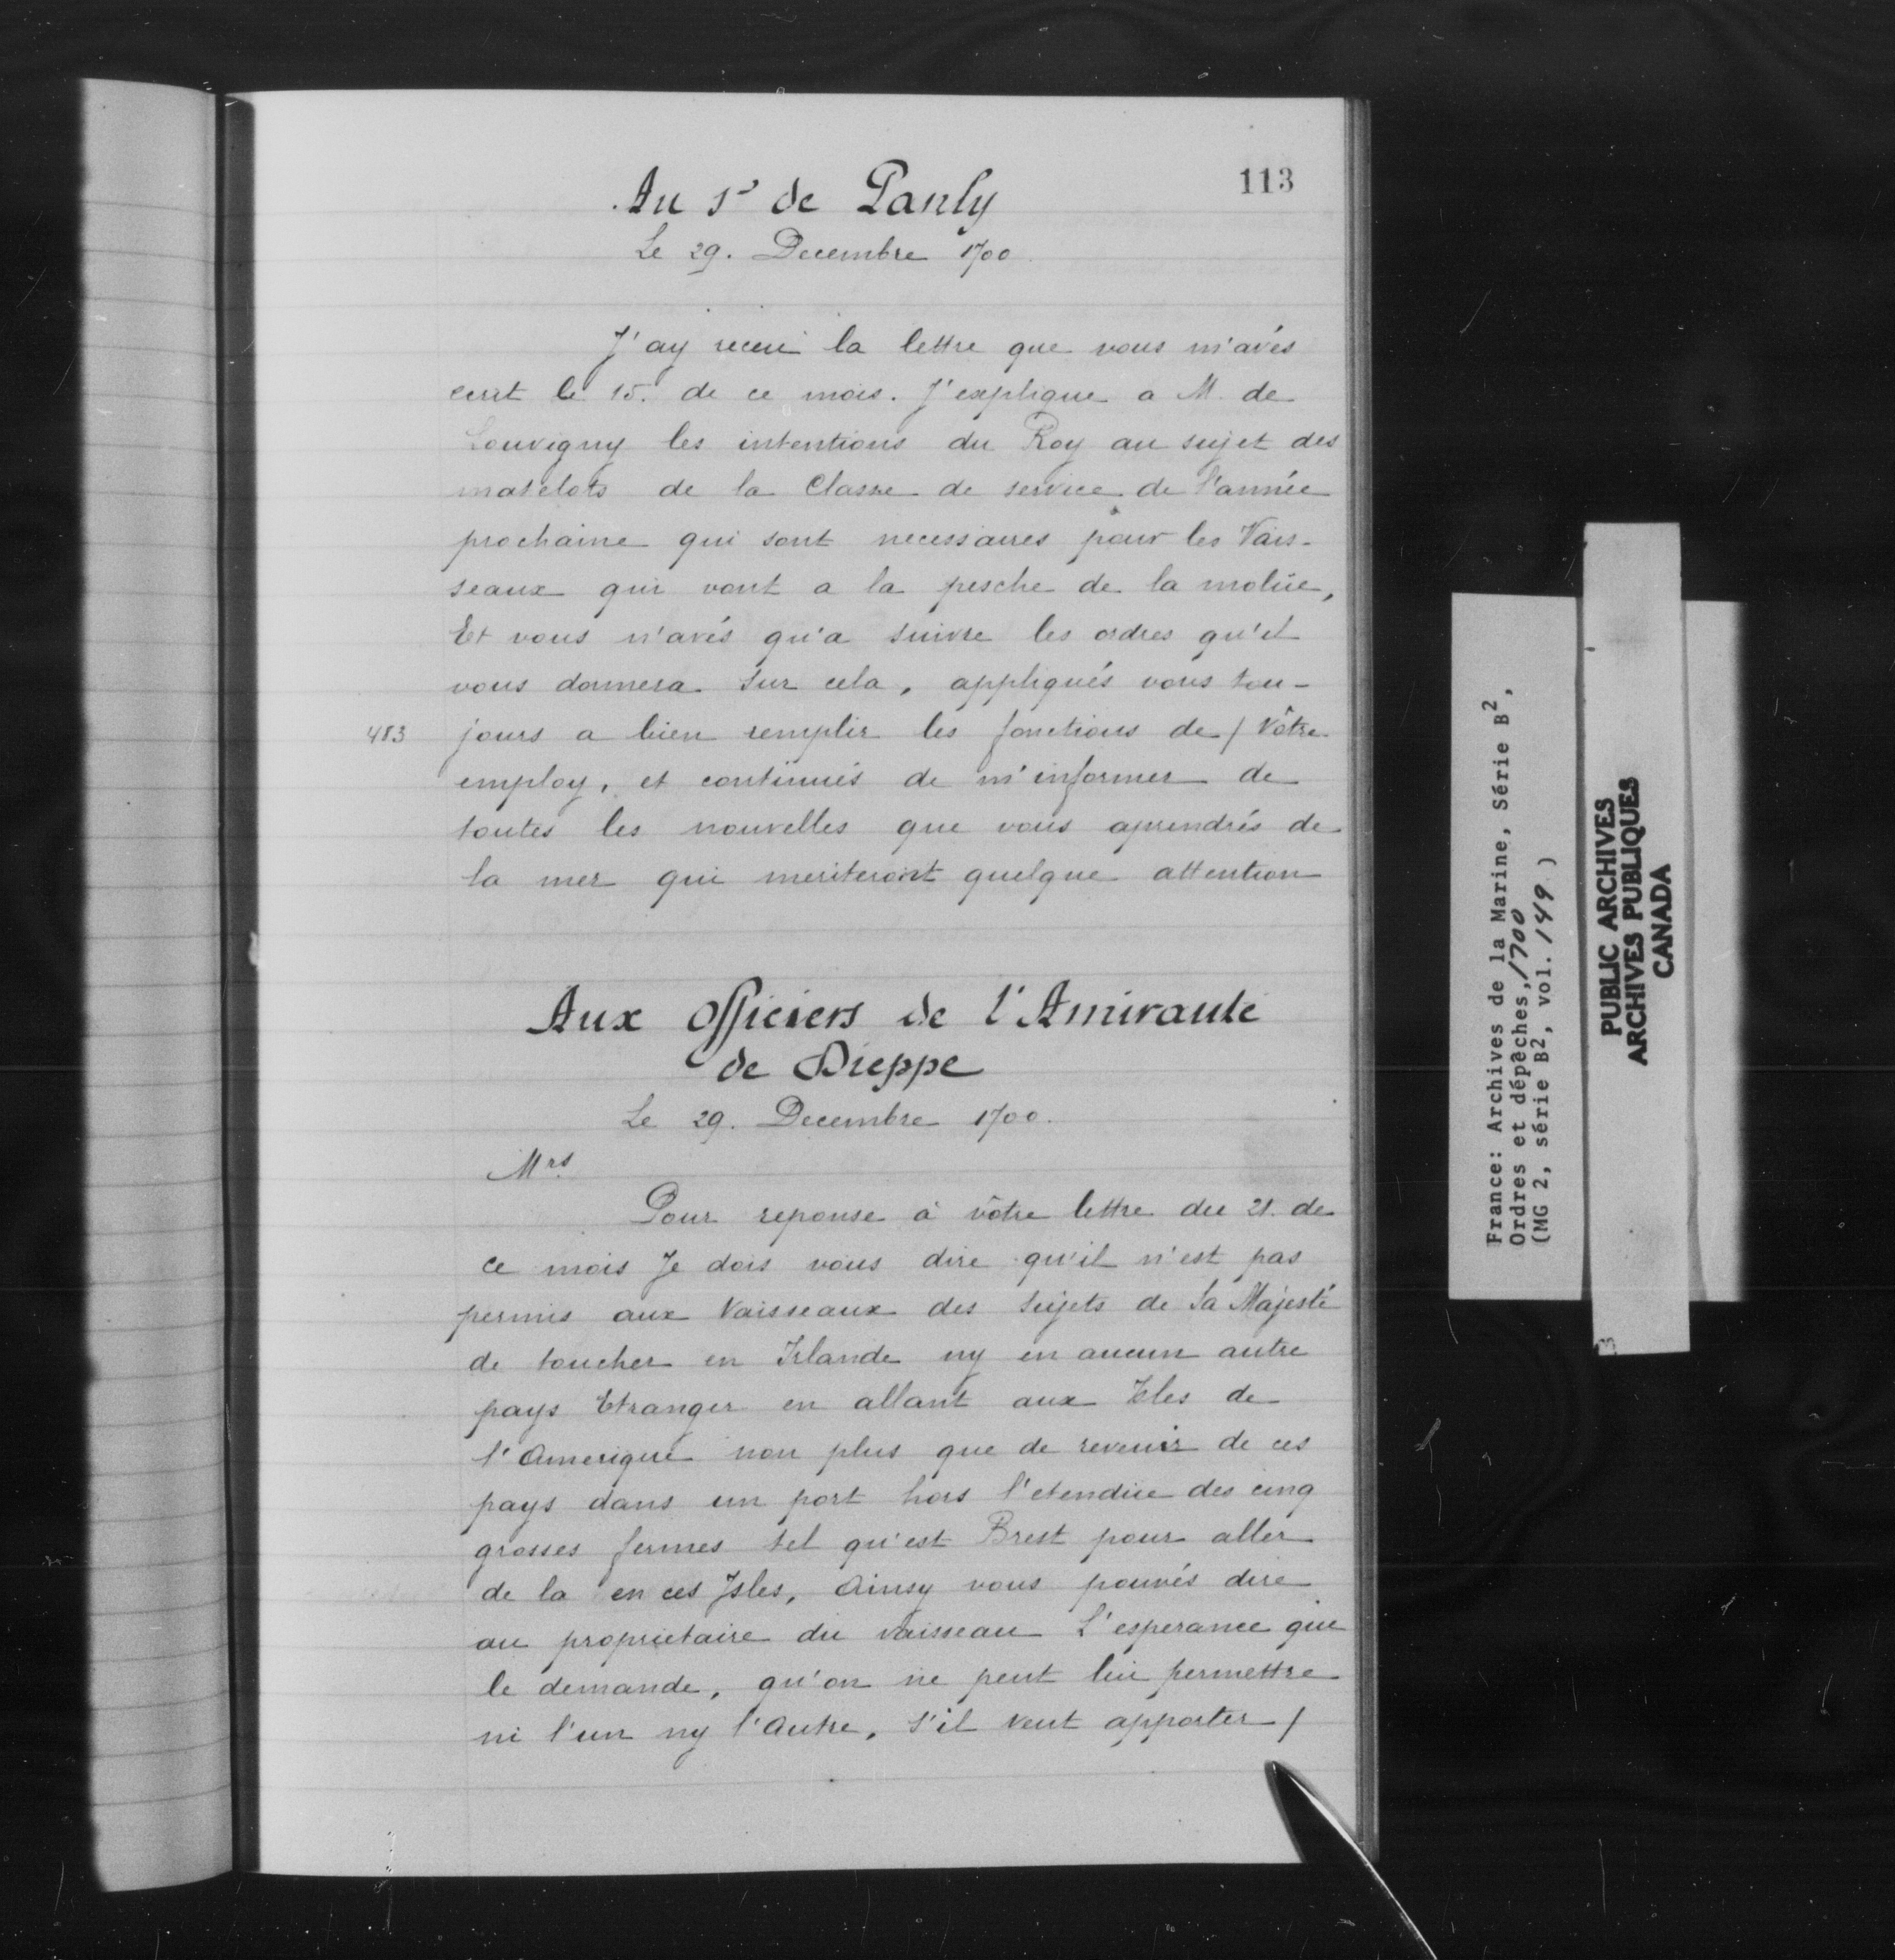 113
Au Sr de Panly
Le 29. Decembre 1700.
J'ay receu la lettre que vous m'avés
ecrit le 15. de ce mois. J'explique a M. de
Louvigny les intentions du Roy au sujet des
matelots de la Classe de service de l'année
prochaine qui sont necessaires pour les Vais-
seaux qui vont a la pesche de la molüe,
Et vous n'avés qu'a suivre les ordres qu'il
vous donnera sur cela, appliqués vous tou-
483 jours a bien remplir les fonctions de / Vôtre
employ, et continués de m'informer de
toutes les nouvelles que vous aprendrés de
la mer qui meriteront quelque attention
Aux officiers de l'Amirauté
de Dieppe
Le 29. Decembre 1700.
Mrs
Pour reponse à vôtre lettre du 21. de
ce mois Je dois vous dire qu'il n'est pas
permis aux Vaisseaux des Sujets de Sa Majesté
de toucher en Irlande ny en aucun autre
pays Etranger en allant aux Isles de
l'Amerique non plus que de revenir de ces
pays dans un port hors l'etendüe des cinq
grosses fermes tel qu'est Brest pour aller
de la en ces Isles, Ainsy vous pouvés dire
au proprietaire du vaisseau L'esperance qui
le demande, qu'on ne peut lui permettre
ni l'un ny l'Autre, s'il veut apporter /
France: Archives de la Marine, Série B2,
Ordres et dépêches, 1700
(MG 2, série B2, vol. 149 )
PUBLIC ARCHIVES
ARCHIVES PUBLIQUES
CANADA